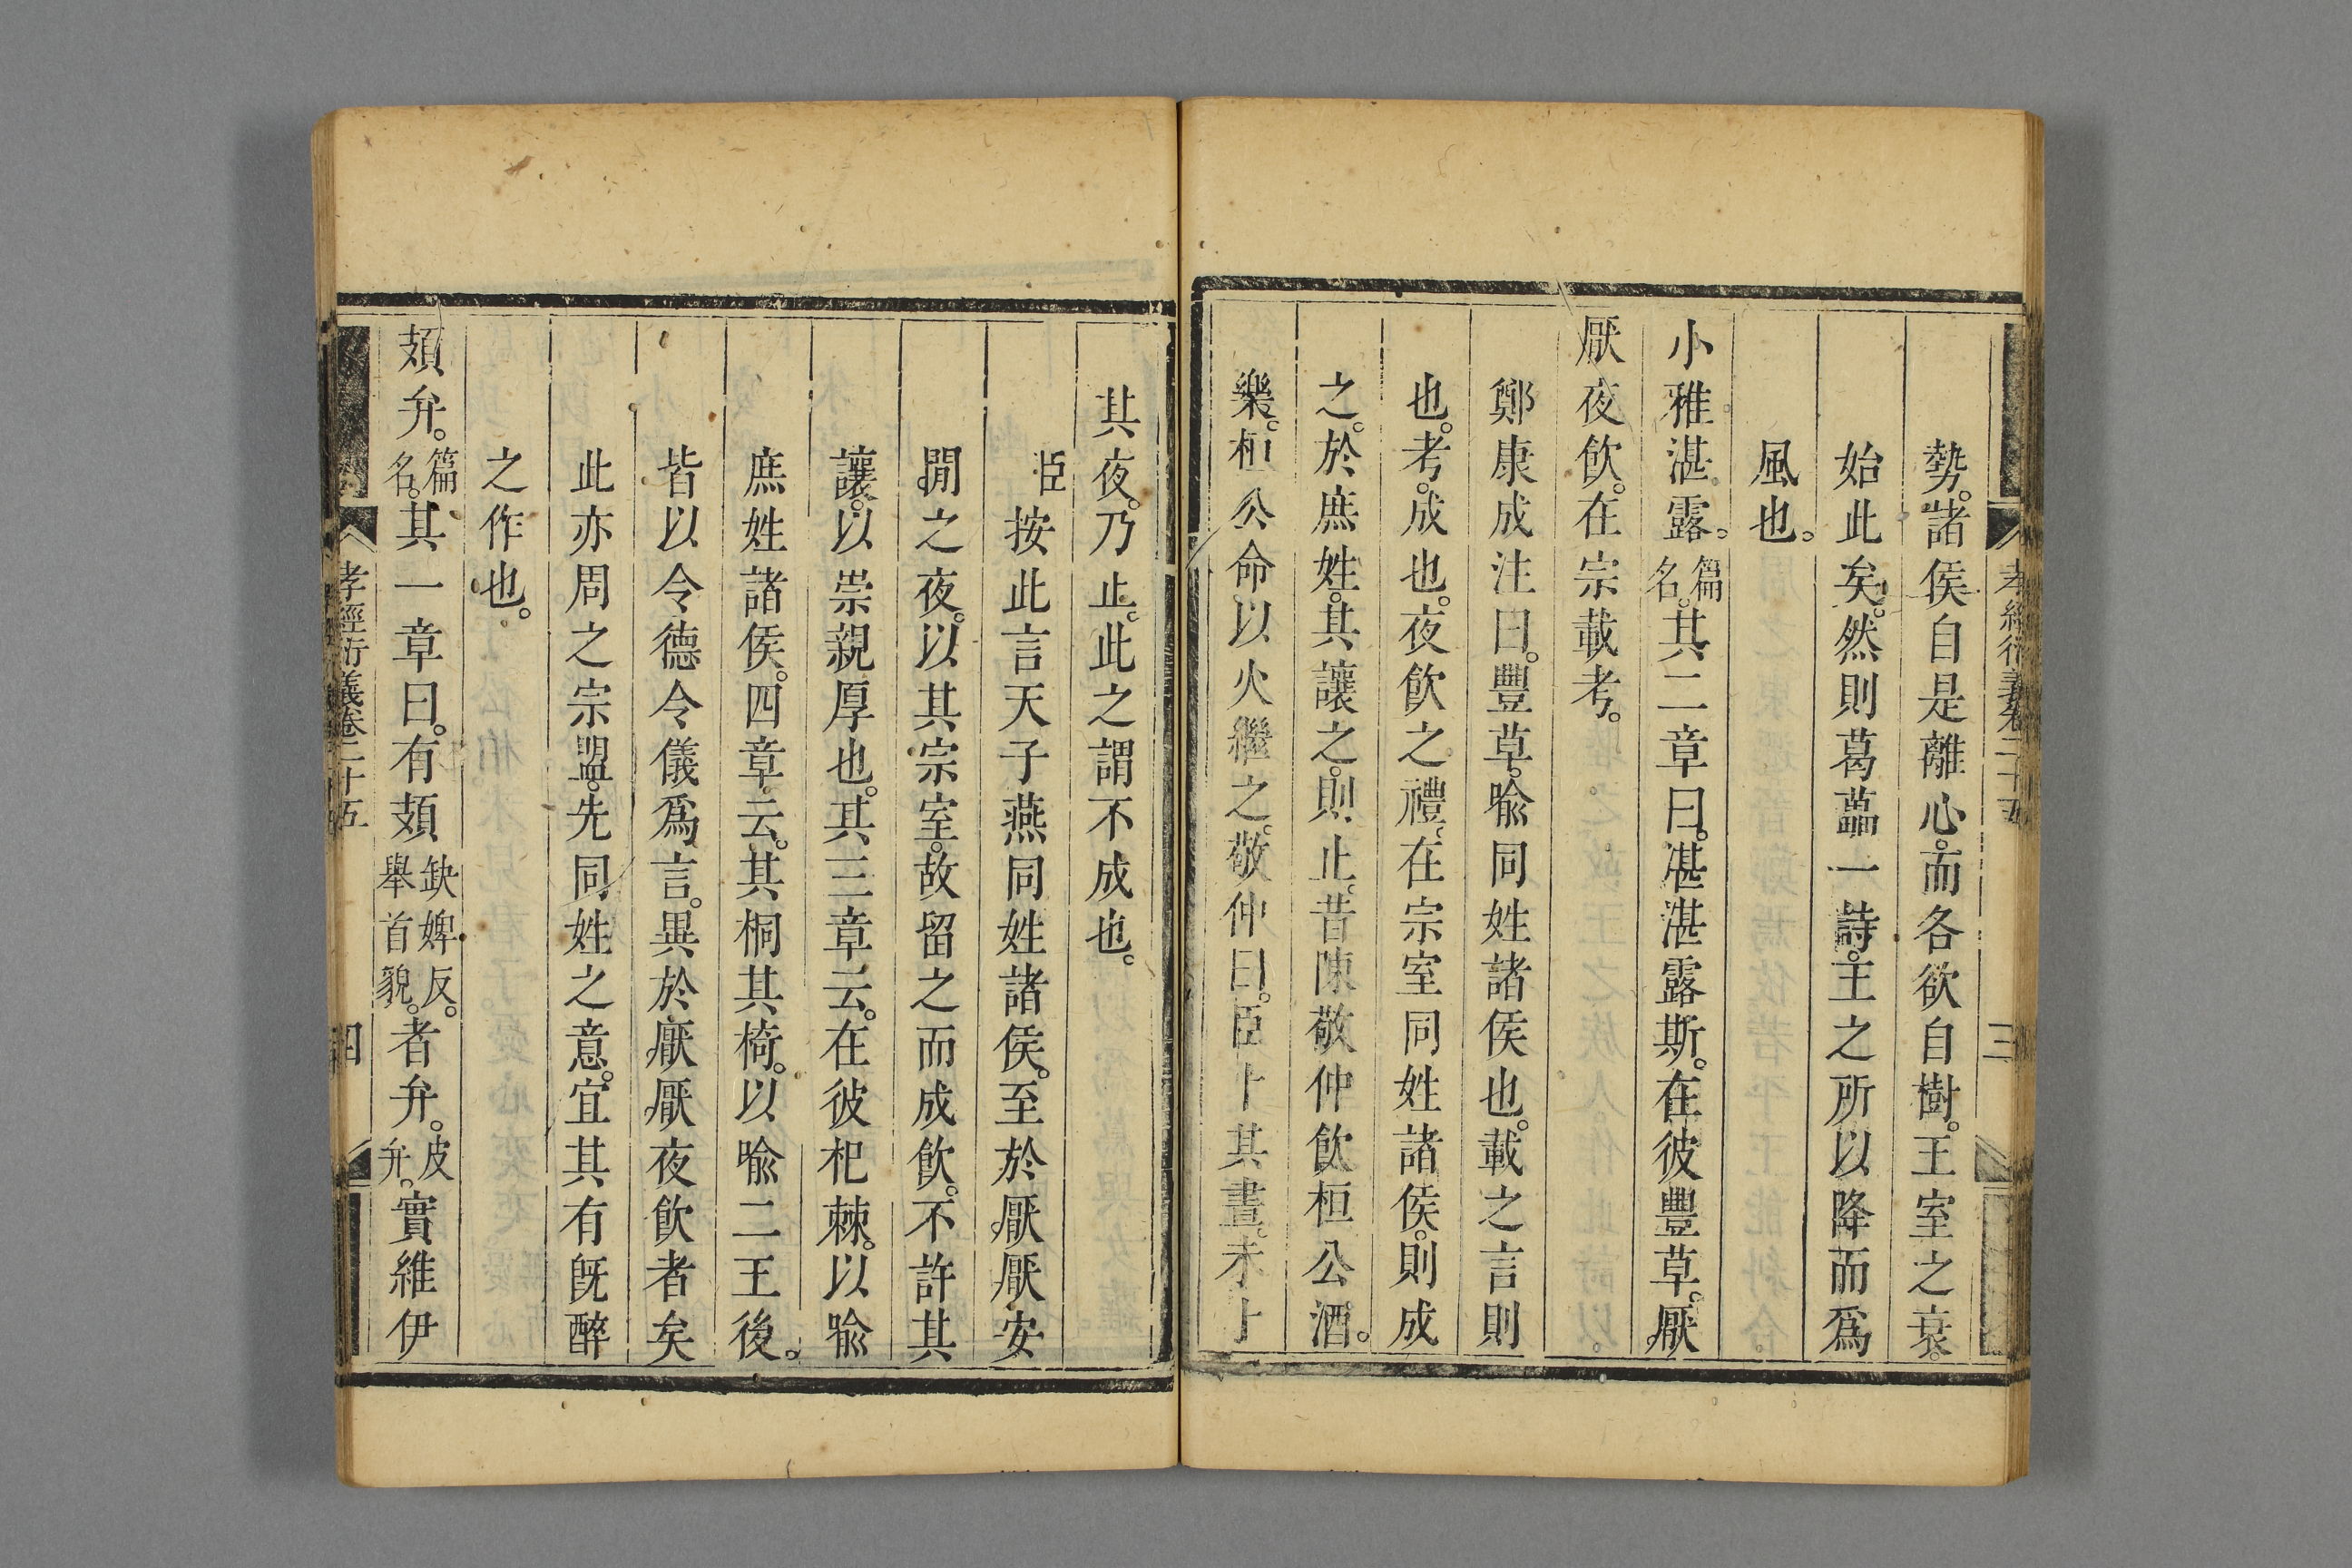 孝經衍義卷二十五
三
勢。諸侯自是離心。而各欲自樹。王室之衰。
始此矣。然則葛藟一詩。王之所以降而爲
風也。
小雅湛露。篇名。其二章曰。湛湛露斯。在彼豐草。厭
厭夜飲。在宗載考。
鄭康成注曰。豐草。喻同姓諸侯也。載之言則
也。考。成也。夜飲之禮。在宗室同姓諸侯。則成
之。於庶姓。其讓之。則止。昔陳敬仲飲桓公酒。
樂。桓公命以火繼之。敬仲曰。臣卜其晝。未卜
其夜。乃止。此之謂不成也。
臣按此言天子燕同姓諸侯。至於厭厭安
閒之夜。以其宗室。故留之而成飲。不許其
讓。以崇親厚也。其三章云。在彼杞棘。以喻
庶姓諸侯。四章云。其桐其椅。以喻二王後。
皆以令德令儀爲言。異於厭厭夜飲者矣
此亦周之宗盟。先同姓之意。宜其有旣醉
之作也。
頍弁。篇名。其一章曰。有頍缺婢反。舉首貌。者弁。皮弁。實維伊
孝經衍義卷二十五
四